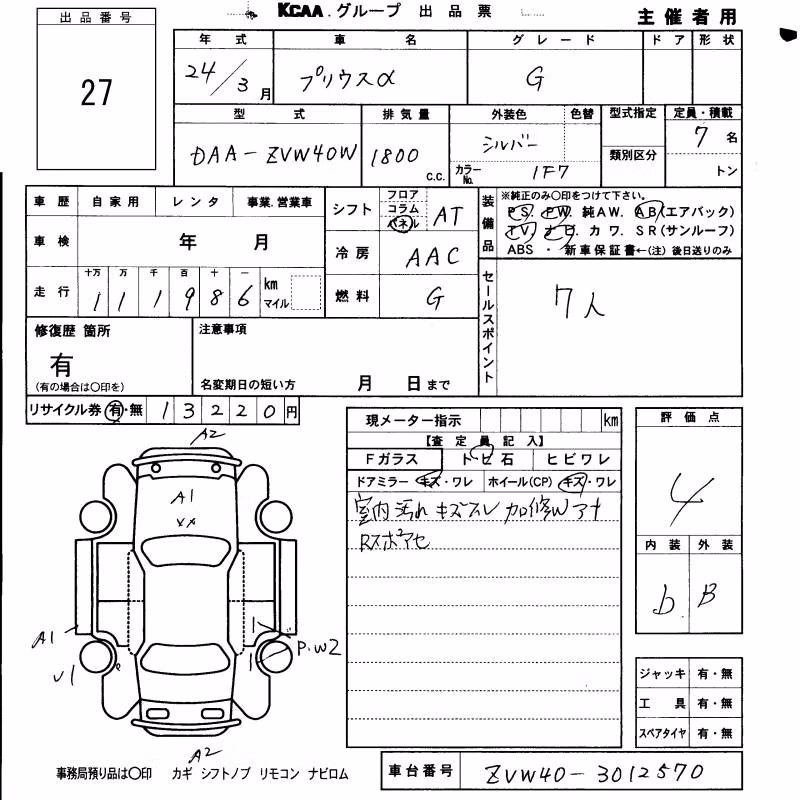 KCAA.グループ 出品票
主催者用
出品番号
27
年式 車名 グレード ドア 形状
24/3月 プリウスα G
型式 排気量 外装色 色替 型式指定 定員・積載
DAA-ZVW40W 1800 c.c. シルバー カラーNo. 1F7 類別区分 7名 トン
車歴 自家用 レンタ 事業.営業車
車検 年 月
走行 十万 万 千 百 十 一 km マイル
1 1 1 9 8 6
シフト フロア コラム パネル AT
冷房 AAC
燃料 G
装備品 ※純正のみ〇印をつけて下さい。
PS. PW. 純AW. AB(エアバック)
TV. ナビ. カワ. SR(サンルーフ)
ABS ・ 新車保証書←(注) 後日送りのみ
セールスポイント 7人
修復歴 箇所
有
(有の場合は〇印を)
注意事項
名変期日の短い方 月 日まで
リサイクル券 有・無 13220円
現メーター指示 km
【査定員記入】
Fガラス トビ石 ヒビワレ
ドアミラー キズ・ワレ ホイール(CP) キズ・ワレ
室内汚れ キズスレ 加修W アナ
評価点
4
内装 外装
b B
A2
A1
A1
P.W2
A2
ジャッキ 有・無
工具 有・無
スペアタイヤ 有・無
事務局預り品は〇印 カギ シフトノブ リモコン ナビロム
車台番号 ZVW40-3012570